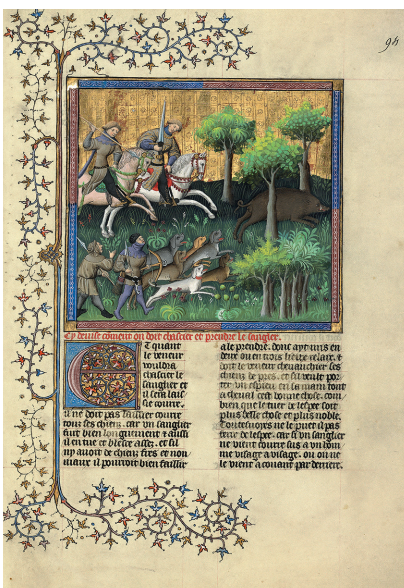 94
Cy devise coment on doit chascier et prendre le sanglier.
Et quant
le veneur
vouldra
chascier le
sanglier et
il sera lais
sie courre,
il ne doit pas laissier courre
tous ses chiens. car un sanglier
fuit bien longuement et aussi
il en tue et blesse assez. et sil
ny avoit de chiens fres et nou
niaux il pourroit bien faillir
a le prendre. donc ayt mis en
deux ou en trois lieux relaiz. et
doit le veneur chevauchier ses
chiens de pres. et sil veult por
ter un espieu en la main tout
a cheval cest bonne chose. com
bien que le tuer de lespee soit
plus belle chose et plus noble.
Toutesvoyes ne le puet il pas
ferir de lespee. car si un sanglier
ne vient courre sus a un hom
me visage a visage. ou on ne
le vient acouant par derriere.